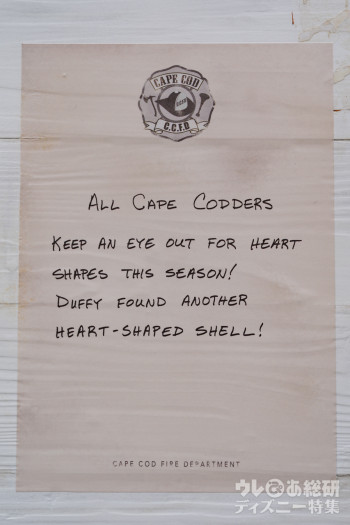 CAPE COD
C.C.F.D
ALL CAPE CODDERS
KEEP AN EYE OUT FOR HEART
SHAPES THIS SEASON!
DUFFY FOUND ANOTHER
HEART-SHAPED SHELL!
CAPE COD FIRE DEPARTMENT
ウレぴあ総研
ディズニー特集